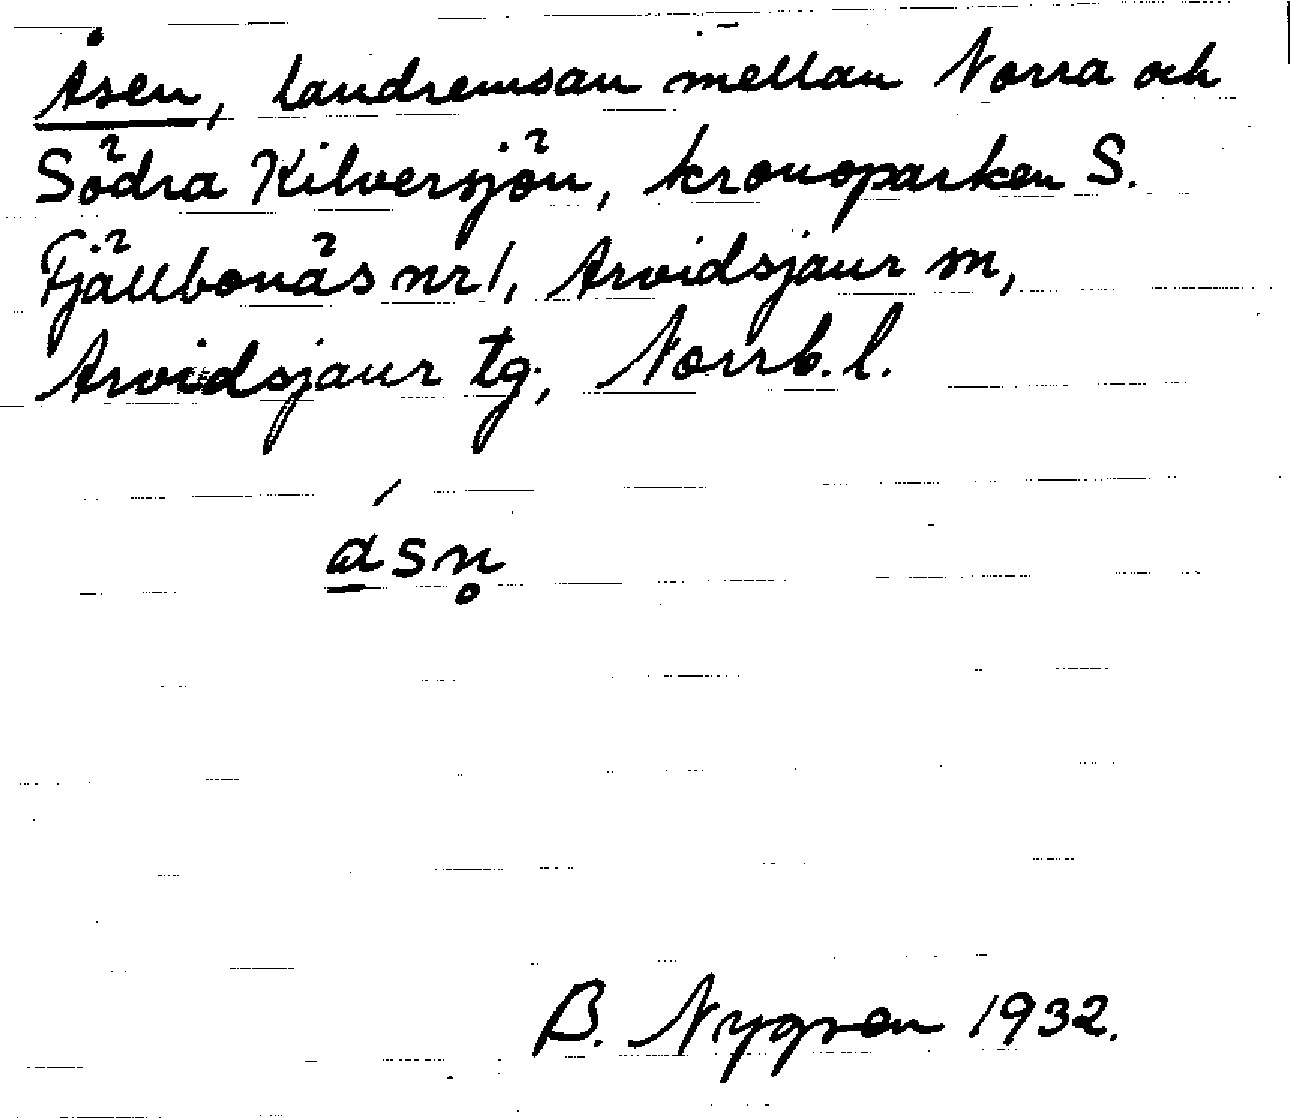 Åsen, landremsan mellan Norra och
Södra Kilversjön, kronoparken S.
Fjällbonäs nr 1, Arvidsjaur sn,
Arvidsjaur tg., Norrb. l.
á̱sn̥
B. Nygren 1932.